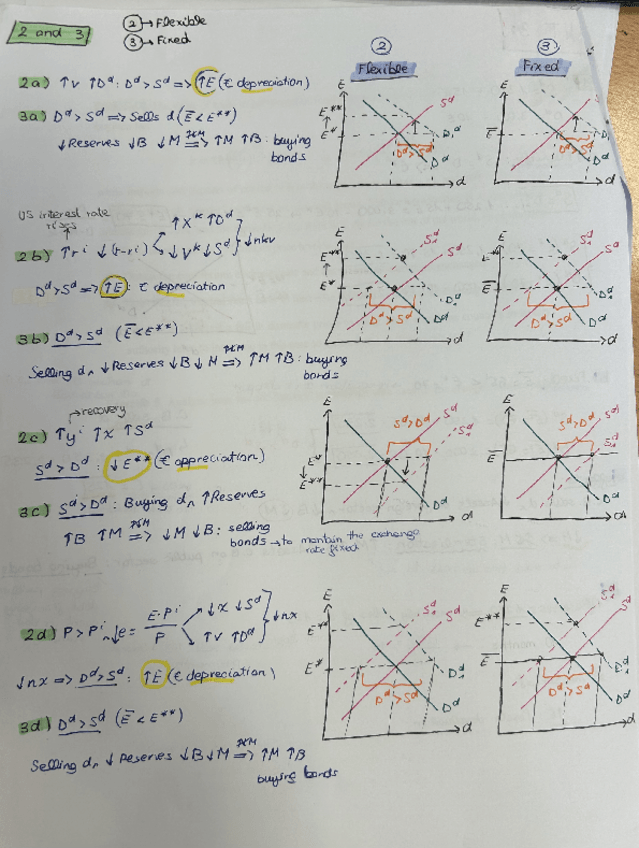 2 and 3
② → Flexible
③ → Fixed
② Flexible
③ Fixed
2a) ↑v ↑Dᵈ: Dᵈ > Sᵈ => ↑E (€ depreciation)
3a) Dᵈ > Sᵈ => Sells d (E̅ < E**)
↓Reserves ↓B ↓M => ↑M ↑B: buying
bonds
E
E**
↑
E*
Sᵈ
Dᵈ
Dᵈ > Sᵈ
d
E
E̅
Dᵈ > Sᵈ
Dᵈ
d
US interest rate
rises
2b) ↑rⁱ ↓(r-rⁱ)
↑Xᵏ ↑Dᵈ
↓Vᵏ ↓Sᵈ
↓nkv
Dᵈ > Sᵈ => ↑E: € depreciation
3b) Dᵈ > Sᵈ (E̅ < E**)
Selling d, ↓Reserves ↓B ↓M => ↑M ↑B: buying
bonds
E
E**
↑
E*
S₁ᵈ
Sᵈ
Dᵈ > Sᵈ
Dᵈ
d
E
E̅
S₁ᵈ
Sᵈ
Dᵈ > Sᵈ
Dᵈ
d
→ recovery
2c) ↑yⁱ ↑x ↑Sᵈ
Sᵈ > Dᵈ: ↓E** (€ appreciation)
3c) Sᵈ > Dᵈ: Buying d, ↑Reserves
↑B ↑M => ↓M ↓B: selling
bonds → to mantain the exchange
rate fixed
E
Sᵈ > Dᵈ
Sᵈ
S₁ᵈ
E*
↓
E**
Dᵈ
d
E
Sᵈ > Dᵈ
Sᵈ
S₁ᵈ
E̅
Dᵈ
d
2d) P > Pⁱ ↓e = E·Pⁱ / P
↓x ↓Sᵈ
↑v ↑Dᵈ
↓nx
↓nx => Dᵈ > Sᵈ: ↑E (€ depreciation)
3d) Dᵈ > Sᵈ (E̅ < E**)
Selling d, ↓Reserves ↓B ↓M => ↑M ↑B
buying bonds
E
E**
E*
S₁ᵈ
Sᵈ
D₁ᵈ
Dᵈ > Sᵈ
Dᵈ
d
E
E**
E̅
S₁ᵈ
Sᵈ
D₁ᵈ
Dᵈ > Sᵈ
Dᵈ
d